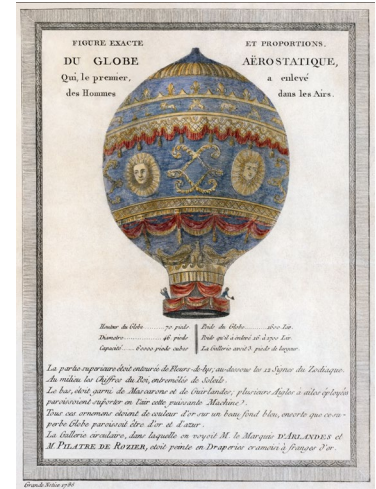 FIGURE EXACTE ET PROPORTIONS,
DU GLOBE AËROSTATIQUE,
Qui, le premier, a enlevé
des Hommes dans les Airs.
Hauteur du Globe 70 pieds
Diametre 46 pieds
Capacité 60000 pieds cubes
Poids du Globe 1600 Liv.
Poids qu'il a enlevé 16 à 1700 Liv.
La Gallerie avoit 3 pieds de largeur.
La partie superieure étoit entourée de Fleurs-de-lys, au-dessous les 12 Signes du Zodiaque.
Au milieu les Chiffres du Roi, entremêlés de Soleils.
Le bas, étoit garni de Mascarons et de Guirlandes; plusieurs Aigles à ailes éployées
paroissoient suporter en l'air cette puissante Machine.
Tous ces ornemens étoient de couleur d'or sur un beau fond bleu, ensorte que ce su-
perbe Globe paroissoit être d'or et d'azur.
La Gallerie circulaire, dans laquelle on voyoit M. le Marquis D'ARLANDES et
M. PILATRE DE ROZIER, étoit peinte en Draperies cramoisi à franges d'or.
1786